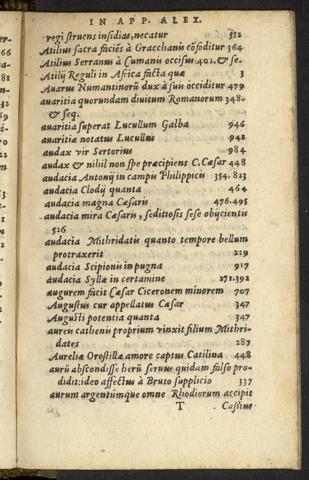 IN APP. ALEX.
regi struens insidias, necatur 512
Atilius sacra faciēs à Gracchanis cōfoditur 364
Atilius Serranus à Cumanis occisus 402. & se.
Atilij Reguli in Africa facta quæ 3
Avarus Numantinorū dux à suis occiditur 479
avaritia quorundam divitum Romanorum 348.
& seq.
avaritia superat Lucullum Galba 946
avaritiæ notatus Lucullus 942
audax vir Sertorius 984
audax & nihil non spe præcipiens C. Cæsar 448
audacia Antonij in campis Philippicis 354. 823
audacia Clodij quanta 464
audacia magna Cæsaris 476. 495
audacia mira Cæsaris, seditiosis sese obijcientis
526
audacia Mithridatis quanto tempore bellum
protraxerit 229
audacia Scipionis in pugna 917
audacia Syllæ in certamine 271. 392
augurem facit Cæsar Ciceronem minorem 707
Augustus cur appellatus Cæsar 347
Augusti potentia quanta 347
aureis cathenis proprium vinxit filium Mithri-
dates 287
Aureliæ Orestillæ amore captus Catilina 448
aurū abscondisse herū servus quidam falso pro-
didit: ideo affectus à Bruto supplicio 337
aurum argentumque omne Rhodiorum accipit
T Cassius